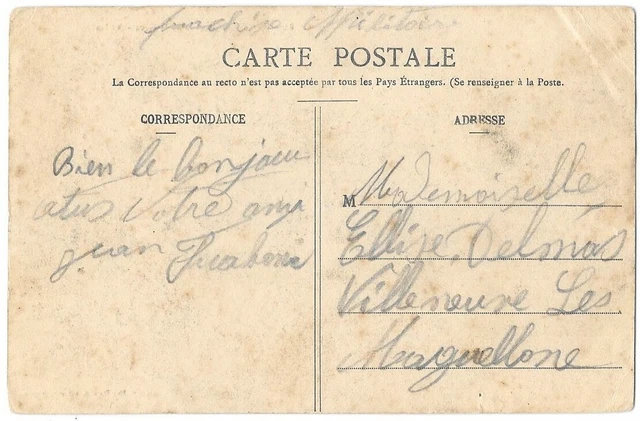 franchise Militaire
CARTE POSTALE
La Correspondance au recto n'est pas acceptée par tous les Pays Étrangers. (Se renseigner à la Poste.
CORRESPONDANCE
Bien le bonjour
atus Votre ami
jean
ADRESSE
M Mademoiselle
Elise Delmas
Villeneuve Les
Maguellone